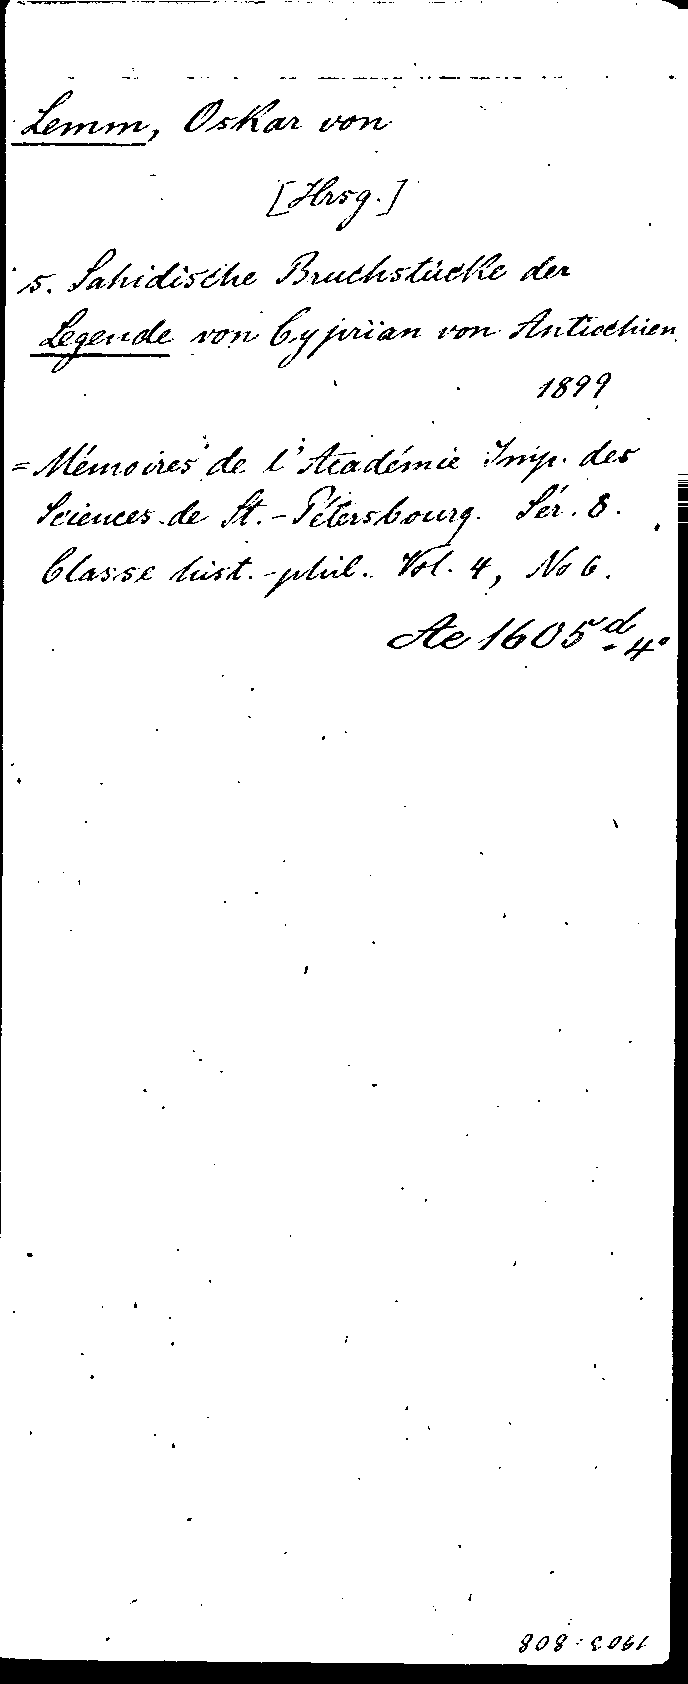 Lemm, Oskar von
[Hrsg.]
s. Sahidische Bruchstücke der
Legende von Cyprian von Antiochien
1899
= Mémoires de l'Académie Imp. des
Sciences de St.-Pétersbourg. Sér. 8.
Classe hist.-phil. Vol. 4, No 6.
Ae 1605 d - 4°
1903:808